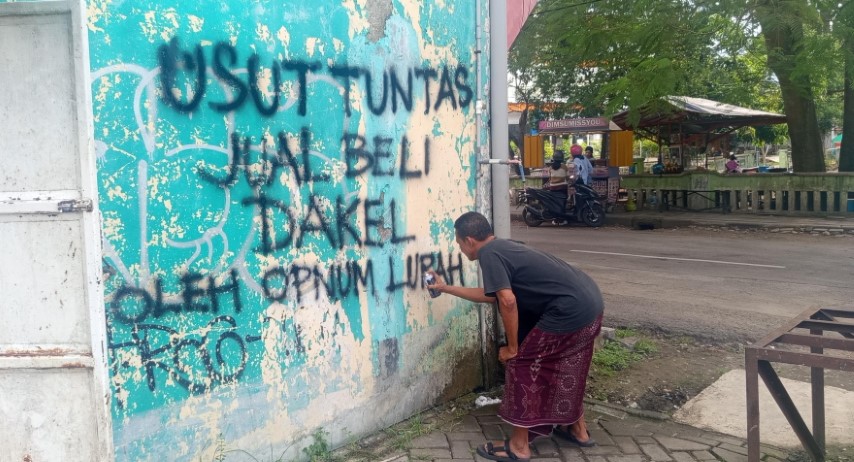 USUT TUNTAS
JUAL BELI
DAKEL
OLEH OPNUM LURAH
DIMSUMISSYOU